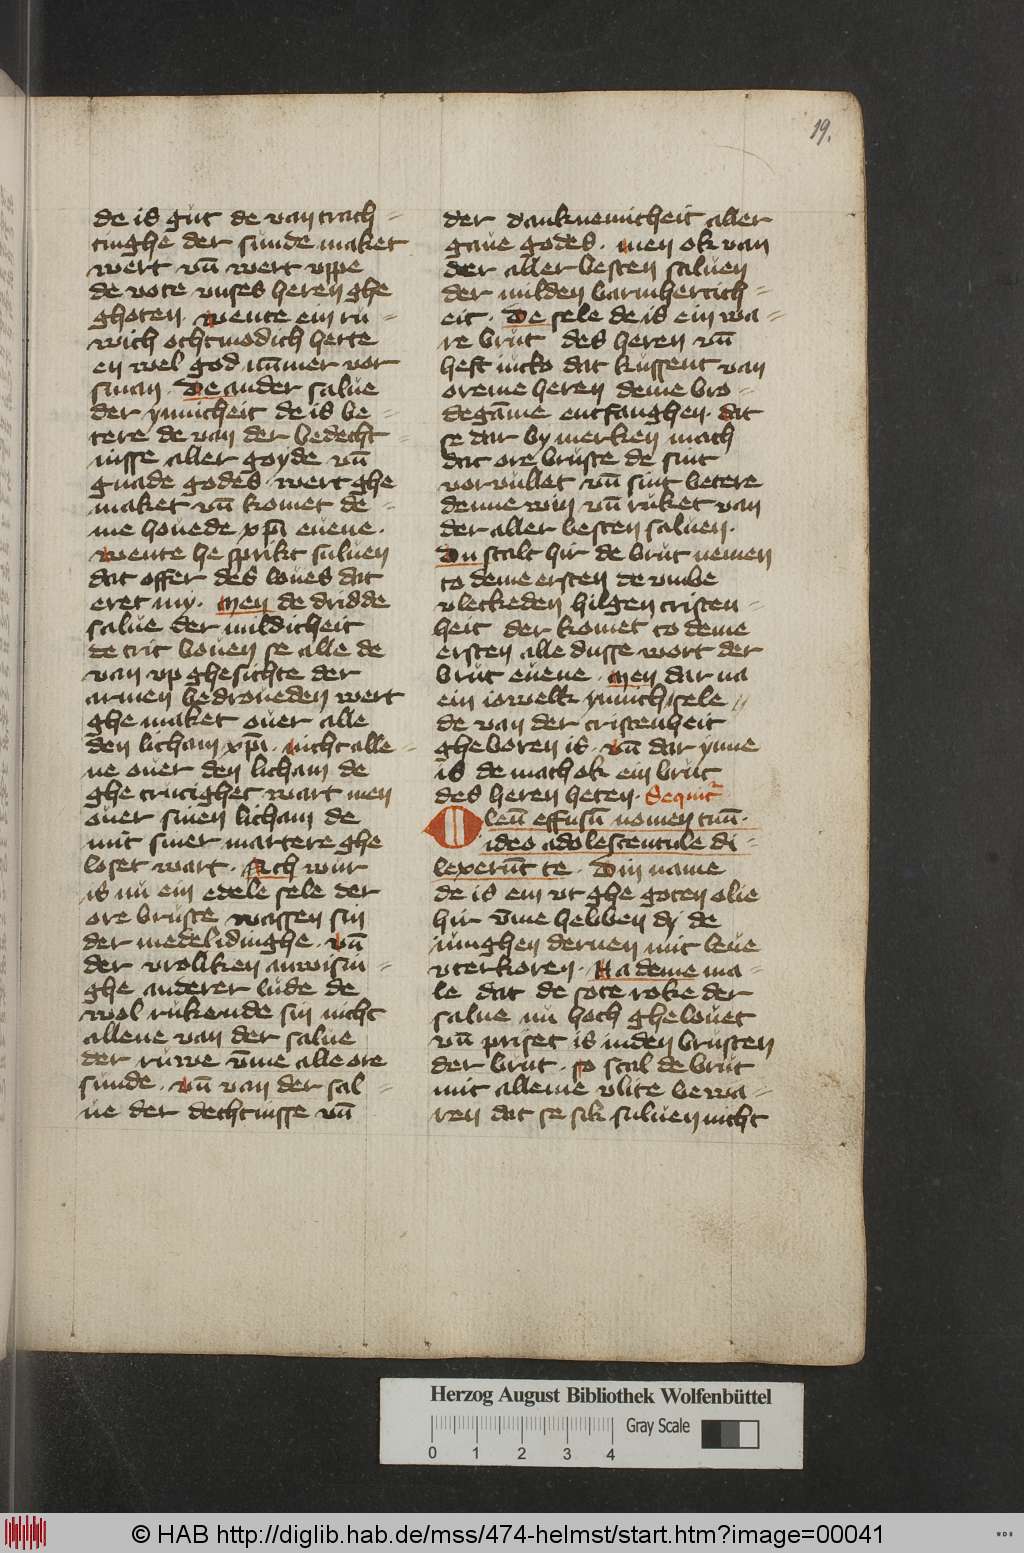 19.
de is gůt de van trach-
tinghe der sunde maket
wert vn̄ wert vppe
de vote vnses heren ghe
ghoten. wente ein rů-
wich othmodich herte
en wel god nūmer vor
sman. De ander salue
der ynnicheit de is be-
tere de van der bedecht-
nisse aller goyde vn̄
gnade godes. wert ghe
maket vn̄ komet de-
me houede xp̄i euene.
wente he sprikt suluen
dat offer des loues dat
eret my. Men de dridde
salue der mildicheit
de trit bouen se alle de
van vp ghesichte der
armen bedroueden wert
ghe maket ouer alle
den licham xp̄i. nicht alle-
ne ouer den licham de
ghe crucighet wart men
ouer sinen licham de
mit siner martere ghe
loset wart. Ach wur
is nu ein edele sele der
ore brůste wassen sin
der medelidinghe. vn̄
der vroliken anwisin-
ghe anderer lůde de
wol rukende sin nicht
allene van der salue
der růwe v̄me alle ore
sunde. vn̄ van der sal-
ue der dechtnisse vn̄
der danknemicheit aller
gaue godes. men ok van
der aller besten saluen
der milden barmhertich-
eit. De sele de is ein wa-
re brut des heren vn̄
heft nicko dat kussent van
oreme heren deme bro-
degāme entfanghen. dat
se dar by merken mach
dat ore bruste de sint
vorvullet vn̄ sint betere
denne win vn̄ ruket van
der aller besten saluen.
Du scalt hir de brut nemen
to deme ersten de vmbe
vleckeden hilgen cristen-
heit der komet to deme
ersten alle dusse wort der
brut euene. Men dar na
ein iowelk ynnich sele
de van der cristenheit
gheboren is. vn̄ dar ynne
is de mach ok ein brut
des heren heten. Sequitr
Oleū effusū nomen tuū.
ideo adolescentule di-
lexerūt te. Din name
de is ein vt ghe goten olie
hir v̄me hebben dy de
iunghen dernen mit leue
vterkoren. Na deme ma-
le dat de sote roke der
salue nu hoch ghe louet
vn̄ priset is in den brusten
der brut. so scal de brut
mit alleme vlite bewa-
ren dat se sik suluen nicht
Herzog August Bibliothek Wolfenbüttel
Gray Scale
0 1 2 3 4
© HAB http://diglib.hab.de/mss/474-helmst/start.htm?image=00041